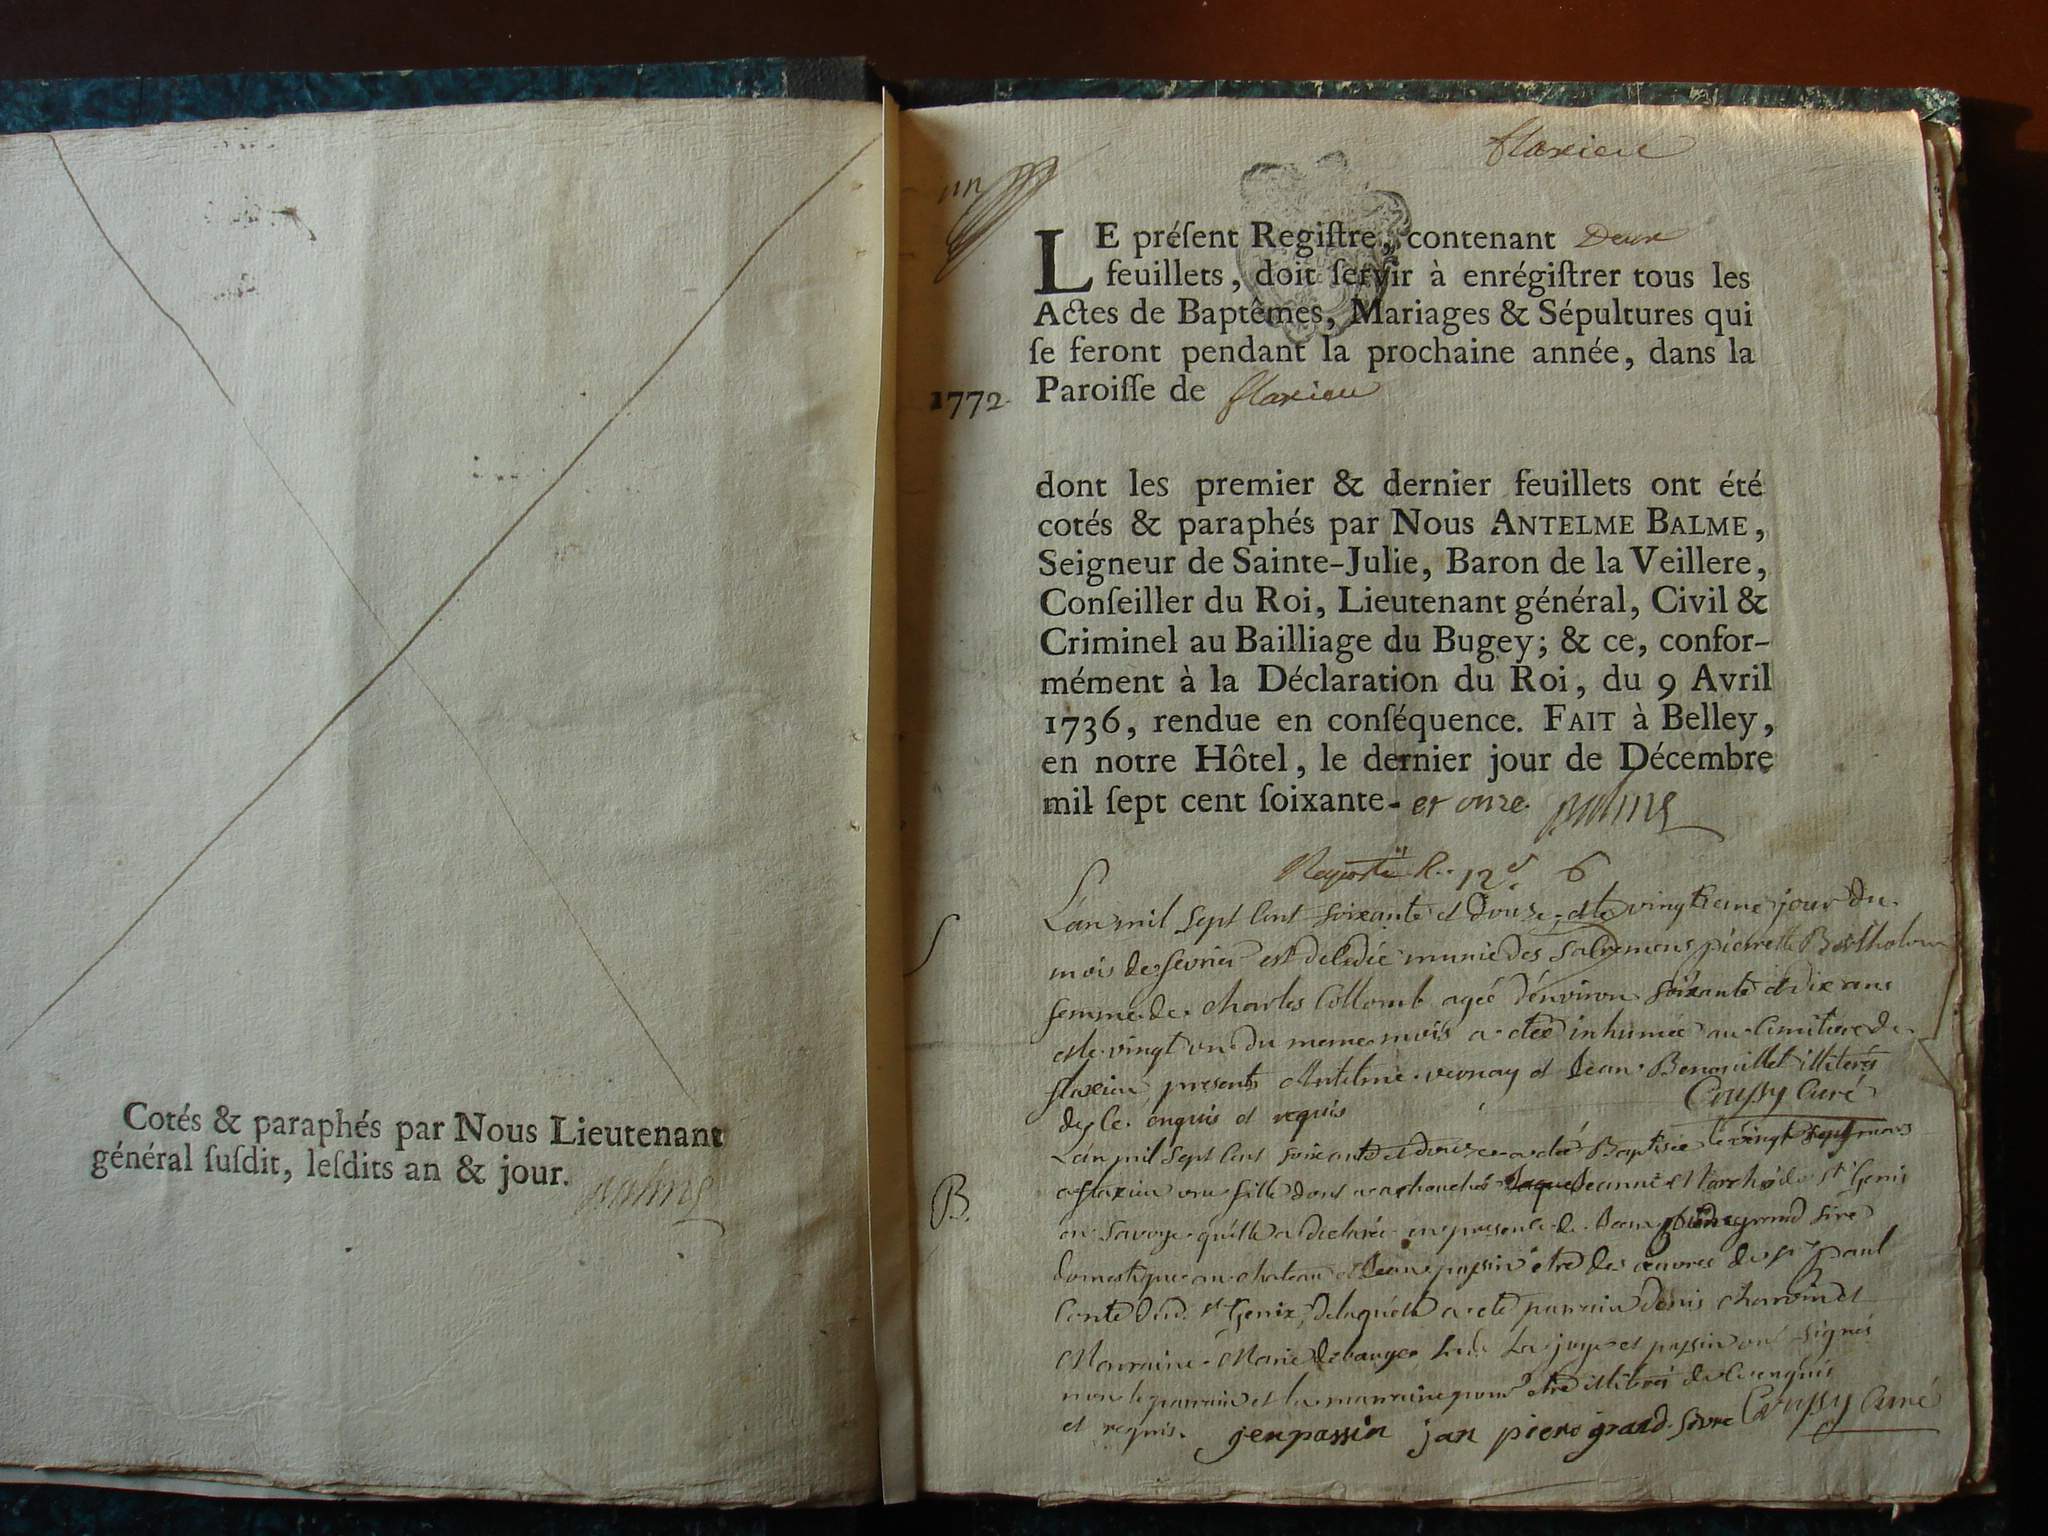 Cotés & paraphés par Nous Lieutenant
général ſuſdit, leſdits an & jour.
Balme
flaxieu
un
LE préſent Regiſtre, contenant Deux
feuillets, doit ſervir à enrégiſtrer tous les
Actes de Baptêmes, Mariages & Sépultures qui
ſe feront pendant la prochaine année, dans la
1772 Paroiſſe de flaxieu
dont les premier & dernier feuillets ont été
cotés & paraphés par Nous ANTELME BALME,
Seigneur de Sainte-Julie, Baron de la Veillere,
Conſeiller du Roi, Lieutenant général, Civil &
Criminel au Bailliage du Bugey; & ce, confor-
mément à la Déclaration du Roi, du 9 Avril
1736, rendue en conſéquence. FAIT à Belley,
en notre Hôtel, le dernier jour de Décembre
mil ſept cent ſoixante- et onze. Balme
12 6
S L'an mil sept cent soixante et douze et le vingtieme jour du
mois de fevrier est decedée munie des sacremens pierrette Bertholom
femme de charles Collomb agée d'environ soixante et dix ans
et le vingt un du meme mois a etée inhumée au cimitiere de
flaxieu presents Antelme vernay et Jean Benonillet illiterés
de ce enquis et requis Coussy Curé
B. L'an mil sept cent soixante et douze a eté Baptisée le vingt sept mars
a flaxieu une fille dont a achouchée Jeanne Marche de st Genis
en Savoye qu'elle a declarée en presence de Jean pierre grand sire
domestique au chateau et Jean passin etre des œuvres de sr paul
Conte dud. st Genix, de laquelle a eté parrain denis charvin et
Marraine Marie debauge et passin ont signés
non le parrain et la marraine pour etre illiterés de ce enquis
et requis. jen passin jan piere grand sivre Coussy Curé